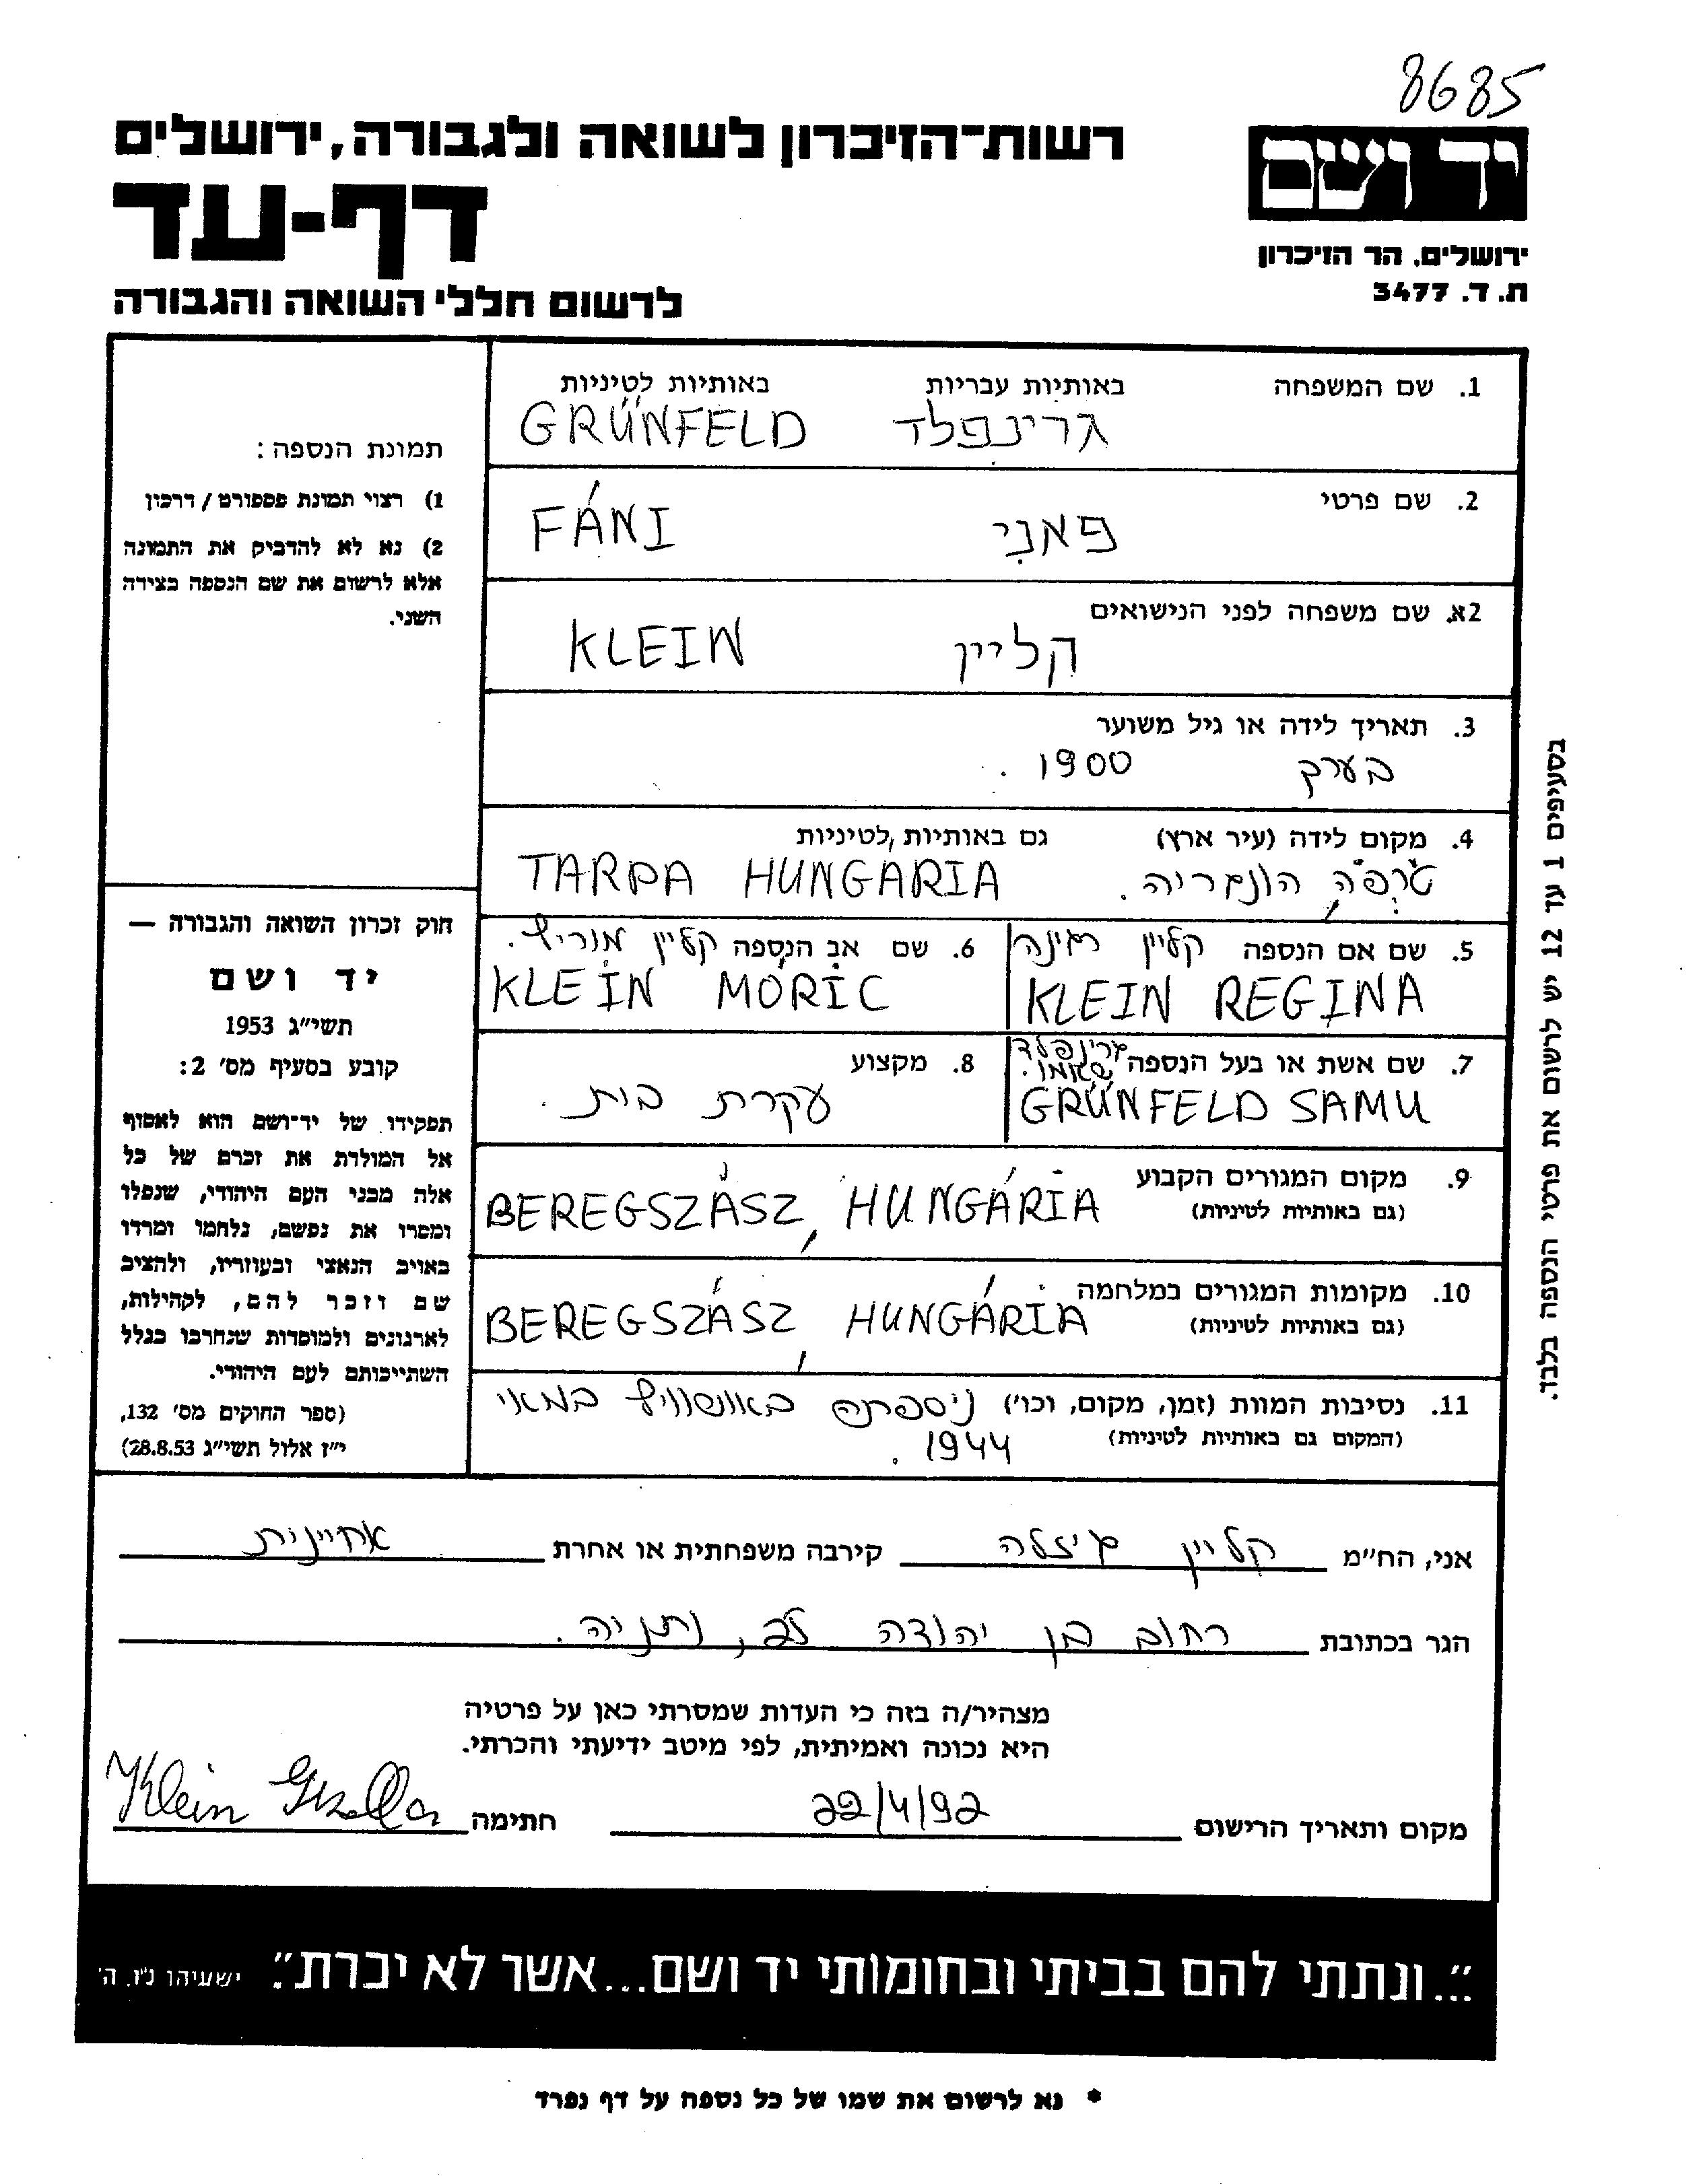 8685
יד ושם
ירושלים. הר הזיכרון
ת. ד. 3477
רשות-הזיכרון לשואה ולגבורה, ירושלים
דף-עד
לרשום חללי השואה והגבורה
1. שם המשפחה באותיות עבריות באותיות לטיניות
גרינפלד GRÜNFELD
2. שם פרטי
פאני FÁNI
2א. שם משפחה לפני הנישואים
קליין KLEIN
3. תאריך לידה או גיל משוער
בערך 1900.
4. מקום לידה (עיר ארץ) גם באותיות לטיניות
טרפה, הונגריה. TARPA HUNGARIA
5. שם אם הנספה קליין רגינה
KLEIN REGINA
6. שם אב הנספה קליין מוריץ.
KLEIN MÓRIC
7. שם אשת או בעל הנספה גרינפלד
שאמו.
GRÜNFELD SAMU
8. מקצוע
עקרת בית.
9. מקום המגורים הקבוע
(גם באותיות לטיניות)
BEREGSZÁSZ, HUNGÁRIA
10. מקומות המגורים במלחמה
(גם באותיות לטיניות)
BEREGSZÁSZ, HUNGÁRIA
11. נסיבות המוות (זמן, מקום, וכו') ניספתה באושוויץ במאי
(המקום גם באותיות לטיניות) 1944.
תמונת הנספה:
1) רצוי תמונת פספורט / דרכון
2) נא לא להדביק את התמונה
אלא לרשום את שם הנספה בצידה
השני.
חוק זכרון השואה והגבורה —
יד ושם
תשי״ג 1953
קובע בסעיף מס׳ 2:
תפקידו של יד-ושם הוא לאסוף
אל המולדת את זכרם של כל
אלה מבני העם היהודי, שנפלו
ומסרו את נפשם, נלחמו ומרדו
באויב הנאצי ובעוזריו, ולהציב
שם וזכר להם, לקהילות,
לארגונים ולמוסדות שנחרבו בגלל
השתייכותם לעם היהודי.
(ספר החוקים מס׳ 132,
י״ז אלול תשי״ג 28.8.53)
בסעיפים 1 עד 12 יש לרשום את פרטי הנספה בלבד.
אני, הח״מ קליין גיזלה קירבה משפחתית או אחרת אחיינית
הגר בכתובת רחוב בן יהודה לב, נתניה.
מצהיר/ה בזה כי העדות שמסרתי כאן על פרטיה
היא נכונה ואמיתית, לפי מיטב ידיעתי והכרתי.
מקום ותאריך הרישום 22/4/92 חתימה Klein Gizella
״...ונתתי להם בביתי ובחומותי יד ושם...אשר לא יכרת״. ישעיהו נ״ו. ה׳
* נא לרשום את שמו של כל נספה על דף נפרד